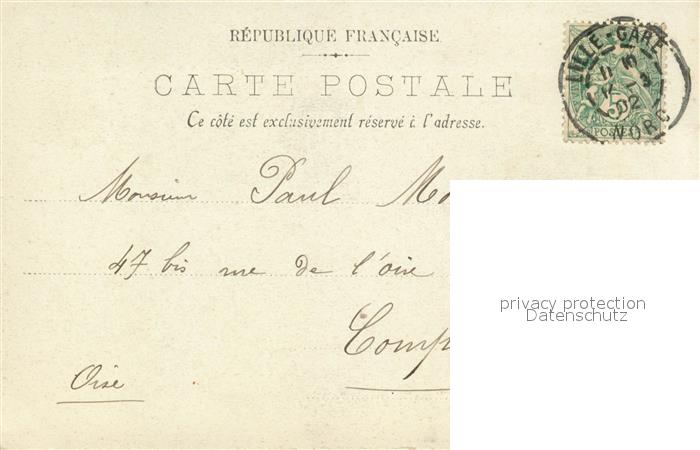 RÉPUBLIQUE FRANÇAISE
CARTE POSTALE
Ce côté est exclusivement réservé à l'adresse.
LILLE-GARE
NORD
5
POSTES
Monsieur Paul Mo
47 bis rue de l'oise
Comp
Oise
privacy protection
Datenschutz